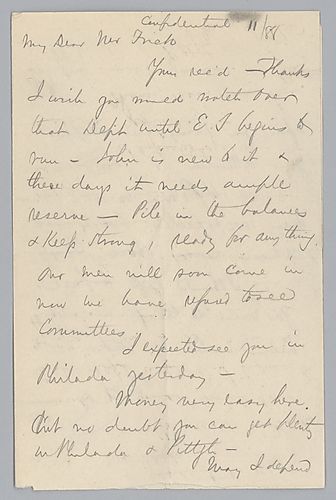 Confidential 11/88
My Dear Mr Frick
Yours rec'd — Thanks
I wish you would watch over
that Dept until E T begins to
run — John is new to it &
these days it needs ample
reserve — Pile in the balances
& Keep strong, ready for any thing.
Our men will soon come in
now we have refused to see
Committees
I expected see you in
Philada yesterday —
Money very easy here.
But no doubt you can get plenty
in Philada & Pittgh —
May I depend